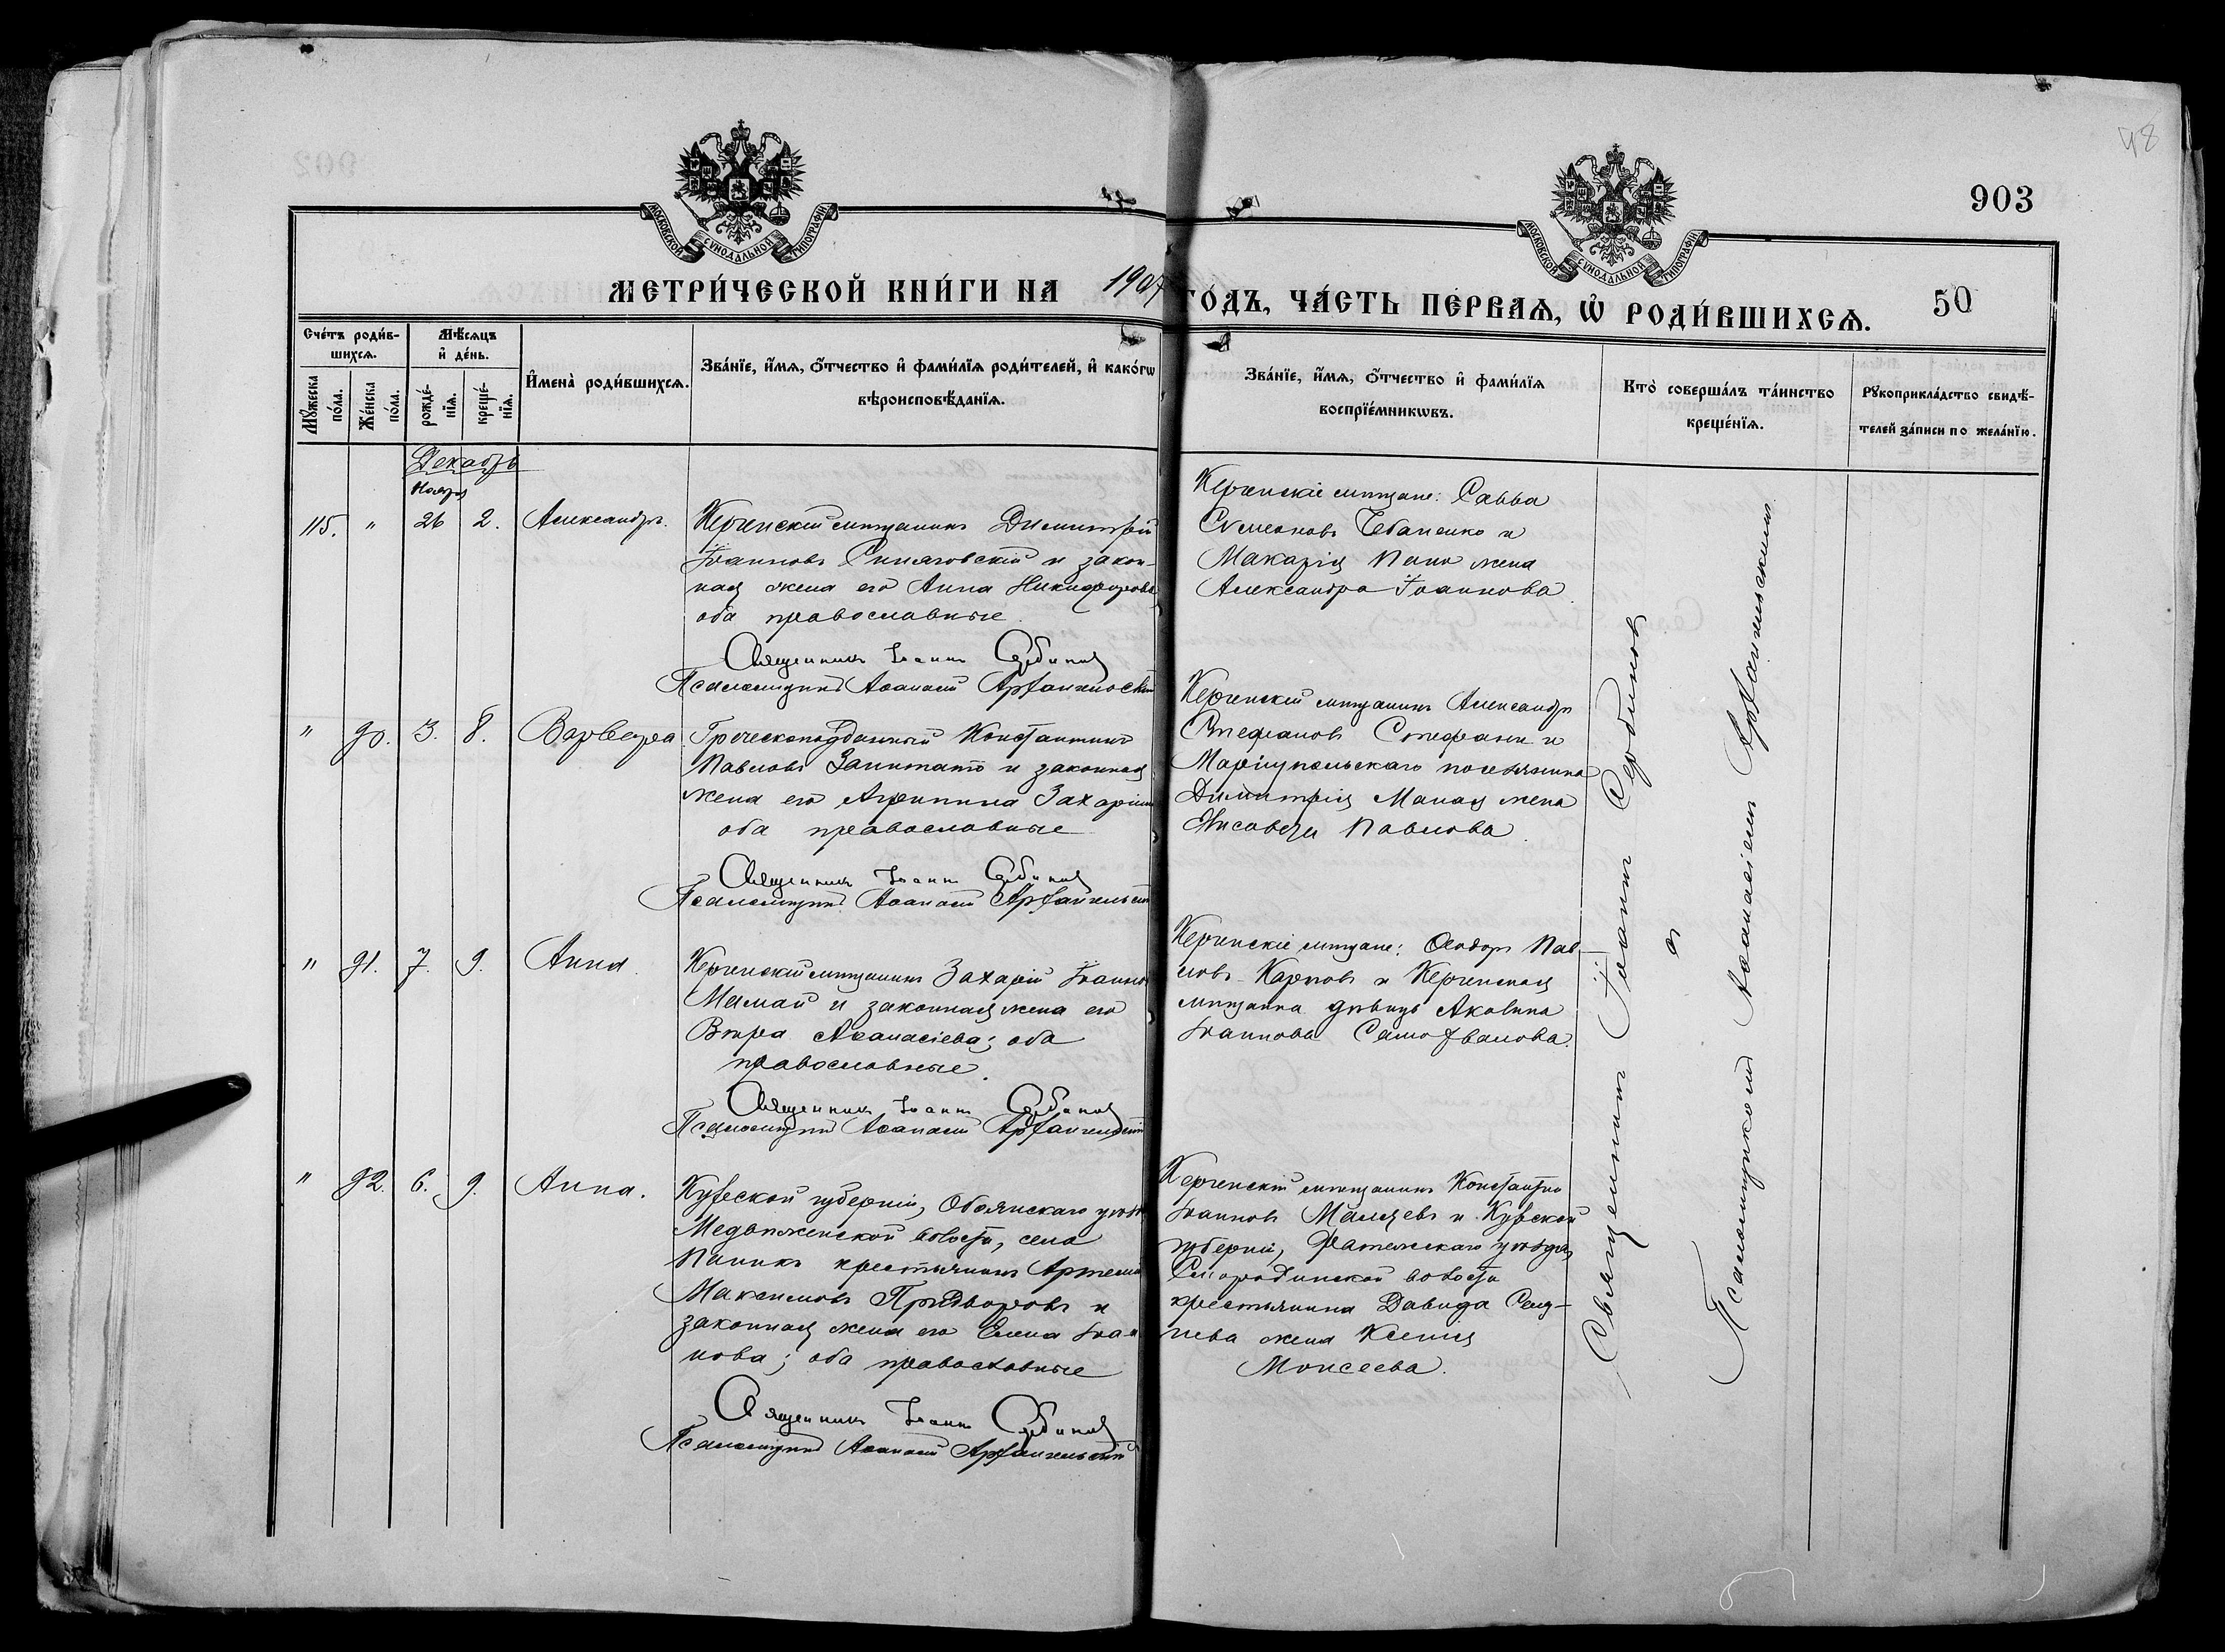 48
903
МОСКОВСКОЙ СУНОДАЛЬНОЙ ТИПОГРАФІИ
МОСКОВСКОЙ СУНОДАЛЬНОЙ ТИПОГРАФІИ
МЕТРИ́ЧЕСКОЙ КНИ́ГИ НА 1907 ГО́ДЪ, ЧА́СТЬ ПЕ́РВАѦ, Ѡ҆ РОДИ́ВШИХСѦ. 50
Сче́тъ роди́в-
шихсѧ.
Мѣ́сѧцъ
и҆ де́нь.
Мꙋ́жеска
по́ла.
Же́нска
по́ла.
рожде́-
нїѧ.
креще́-
нїѧ.
И҆мена̀ роди́вшихсѧ.
Зва́нїе, и҆́мѧ, ѻ҆́тчество и҆ фами́лїѧ роди́телей, и҆ како́гѡ
вѣроисповѣ́данїѧ.
Зва́нїе, и҆́мѧ, ѻ҆́тчество и҆ фами́лїѧ
воспрїе́мникѡвъ.
Кто̀ соверша́лъ та́инство
креще́нїѧ.
Рꙋкоприкла́дство свидѣ́-
телей за́писи по жела́нїю.
Декабрь
Ноября
115. " 26 2. Александръ.
Керченскій мѣщанинъ Димитрій
Іоанновъ Синяговскій и закон-
ная жена его Анна Никифорова
оба православные.
Священникъ Іоаннъ Сербиновъ
Псаломщикъ Аѳанасій Архангельскій
Керченскіе мѣщане: Савва
Симеоновъ Чебаненко и
Макарія Папо жена
Александра Іоаннова.
" 90. 3. 8. Варвара
Греческоподданный Константинъ
Павловъ и законная
жена его Агриппина Захаріина
оба православные
Священникъ Іоаннъ Сербиновъ
Псаломщикъ Аѳанасій Архангельскій
Керченскій мѣщанинъ Александръ
Стефановъ Стефани и
Маріупольскаго поселянина
Димитрія жена
Елисавета Павлова.
" 91. 7. 9. Анна.
Керченскій мѣщанинъ Захарій Іоанновъ
Мамай и законная жена его
Вѣра Аѳанасіева; оба
православные.
Священникъ Іоаннъ Сербиновъ
Псаломщикъ Аѳанасій Архангельскій
Керченскіе мѣщане: Ѳеодоръ Пав-
ловъ Карповъ и Керченская
мѣщанка дѣвица Акилина
Іоаннова Самохвалова.
" 92. 6. 9. Анна.
Курской губерніи, Обоянскаго уѣзда
Медвѣженской волости, села
Паникъ крестьянинъ Артемій
Максимовъ Придворовъ и
законная жена его Елена Іоан-
нова; оба православные
Священникъ Іоаннъ Сербиновъ
Псаломщикъ Аѳанасій Архангельскій
Керченскій мѣщанинъ Константинъ
Іоанновъ Мальцевъ и Курской
губерніи, Фатежскаго уѣзда
Смородинской волости
крестьянина Давида
жена Ксенія
Моисеева.
Священникъ Іоаннъ Сербиновъ
съ
Псаломщикомъ Аѳанасіемъ Архангельскимъ